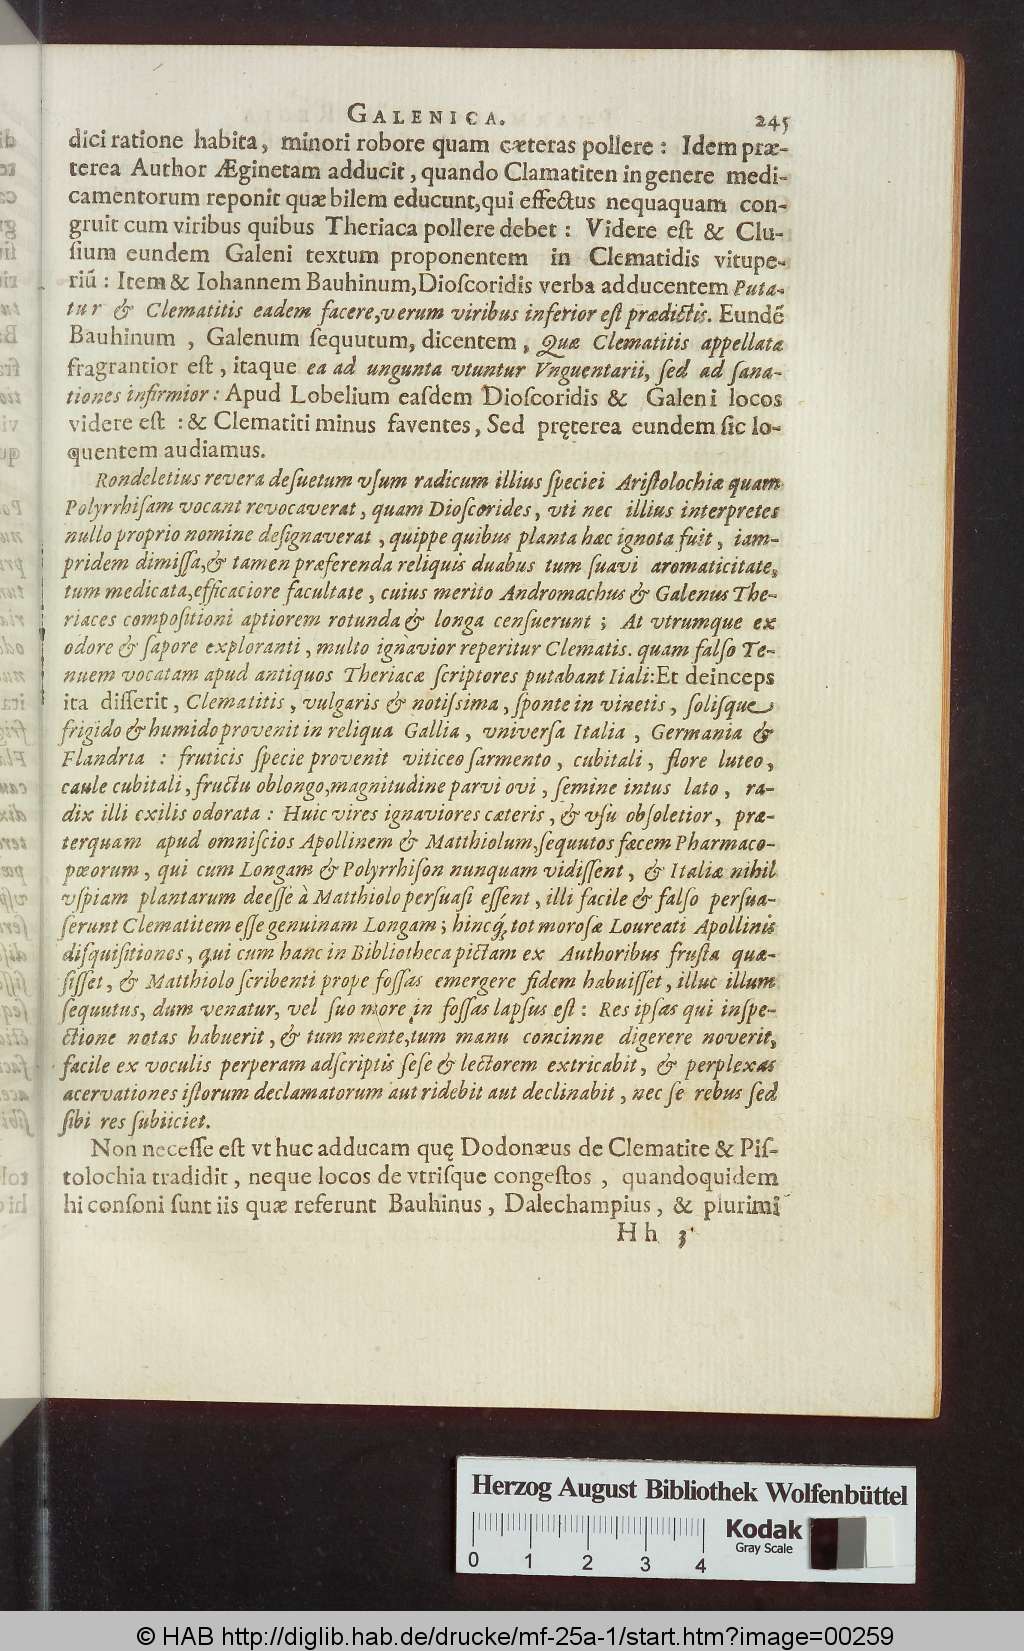 GALENICA. 245
dici ratione habita, minori robore quam cæteras pollere: Idem præ-
terea Author Æginetam adducit, quando Clamatiten in genere medi-
camentorum reponit quæ bilem educunt, qui effectus nequaquam con-
gruit cum viribus quibus Theriaca pollere debet: Videre eſt & Clu-
ſium eundem Galeni textum proponentem in Clematidis vitupe-
riũ: Item & Iohannem Bauhinum, Dioſcoridis verba adducentem Puta-
tur & Clematitis eadem facere, verum viribus inferior eſt prædictis. Eundẽ
Bauhinum, Galenum ſequutum, dicentem, Quæ Clematitis appellata
fragrantior eſt, itaque ea ad ungunta vtuntur Vnguentarii, ſed ad ſana-
tiones infirmior: Apud Lobelium eaſdem Dioſcoridis & Galeni locos
videre eſt: & Clematiti minus faventes, Sed pręterea eundem ſic lo-
quentem audiamus.
Rondeletius revera deſuetum vſum radicum illius ſpeciei Ariſtolochiæ quam
Polyrrhiſam vocant revocaverat, quam Dioſcorides, vti nec illius interpretes
nullo proprio nomine deſignaverat, quippe quibus planta hæc ignota fuit, iam-
pridem dimiſſa, & tamen præferenda reliquis duabus tum ſuavi aromaticitate,
tum medicata, efficaciore facultate, cuius merito Andromachus & Galenus The-
riaces compoſitioni aptiorem rotunda & longa cenſuerunt; At vtrumque ex
odore & ſapore exploranti, multo ignavior reperitur Clematis. quam falſo Te-
nuem vocatam apud antiquos Theriacæ ſcriptores putabant Iiali: Et deinceps
ita diſſerit, Clematitis, vulgaris & notiſſima, ſponte in vinetis, ſoliſque
frigido & humido provenit in reliqua Gallia, vniverſa Italia, Germania &
Flandria: fruticis ſpecie provenit viticeo ſarmento, cubitali, flore luteo,
caule cubitali, fructu oblongo, magnitudine parvi ovi, ſemine intus lato, ra-
dix illi exilis odorata: Huic vires ignaviores cæteris, & vſu obſoletior, præ-
terquam apud omniſcios Apollinem & Matthiolum, ſequutos fæcem Pharmaco-
pœorum, qui cum Longam & Polyrrhiſon nunquam vidiſſent, & Italiæ nihil
vſpiam plantarum deeſſe à Matthiolo perſuaſi eſſent, illi facile & falſo perſua-
ſerunt Clematitem eſſe genuinam Longam; hincq́; tot moroſæ Loureati Apollinis
diſquiſitiones, qui cum hanc in Bibliotheca pictam ex Authoribus fruſta quæ-
ſiſſet, & Matthiolo ſcribenti prope foſſas emergere fidem habuiſſet, illuc illum
ſequutus, dum venatur, vel ſuo more in foſſas lapſus eſt: Res ipſas qui inſpe-
ctione notas habuerit, & tum mente, tum manu concinne digerere noverit,
facile ex voculis perperam adſcriptis ſeſe & lectorem extricabit, & perplexas
acervationes iſtorum declamatorum aut ridebit aut declinabit, nec ſe rebus ſed
ſibi res ſubiiciet.
Non neceſſe eſt vt huc adducam quę Dodonæus de Clematite & Piſ-
tolochia tradidit, neque locos de vtriſque congeſtos, quandoquidem
hi conſoni ſunt iis quæ referunt Bauhinus, Dalechampius, & plurimi
Hh 3
Herzog August Bibliothek Wolfenbüttel
Kodak
Gray Scale
0 1 2 3 4
© HAB http://diglib.hab.de/drucke/mf-25a-1/start.htm?image=00259